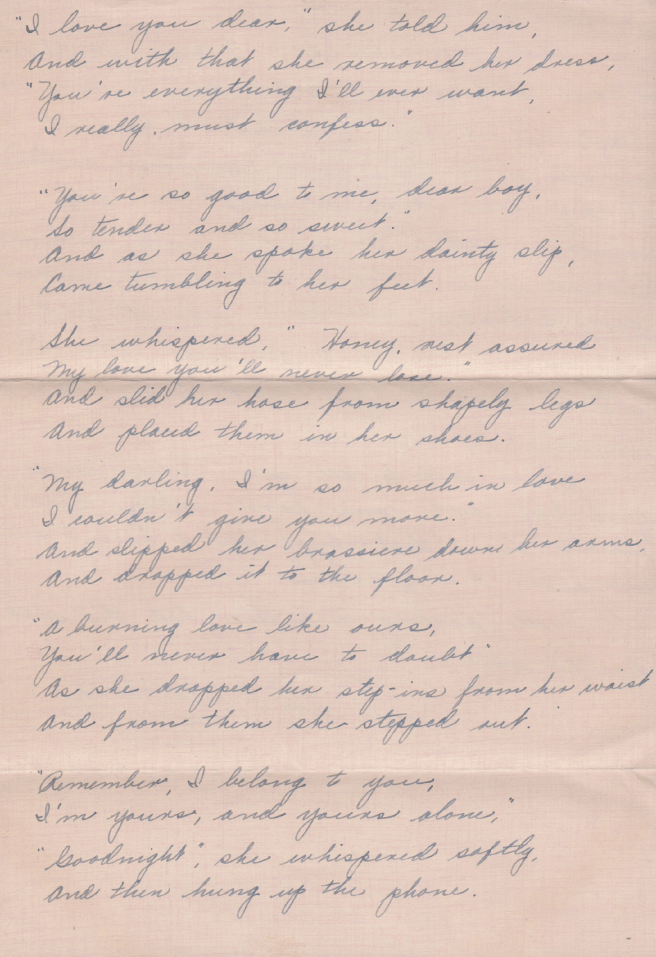 "I love you dear," she told him,
And with that she removed her dress,
"You're everything I'll ever want,
I really must confess."
"You're so good to me, dear boy,
So tender and so sweet."
And as she spoke her dainty slip,
Came tumbling to her feet.
She whispered, " Honey, rest assured
My love you'll never lose."
And slid her hose from shapely legs
And placed them in her shoes.
"My darling, I'm so much in love
I couldn't give you more."
And slipped her brassiere down her arms,
And dropped it to the floor.
"A burning love like ours,
You'll never have to doubt"
As she dropped her step-ins from her waist
And from them she stepped out.
"Remember, I belong to you,
I'm yours, and yours alone,"
"Goodnight", she whispered softly,
And then hung up the phone.